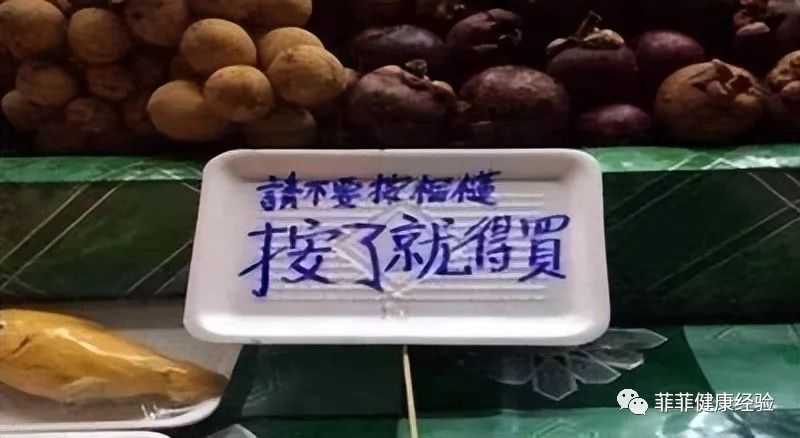 請不要按榴槤
按了就得買
菲菲健康经验